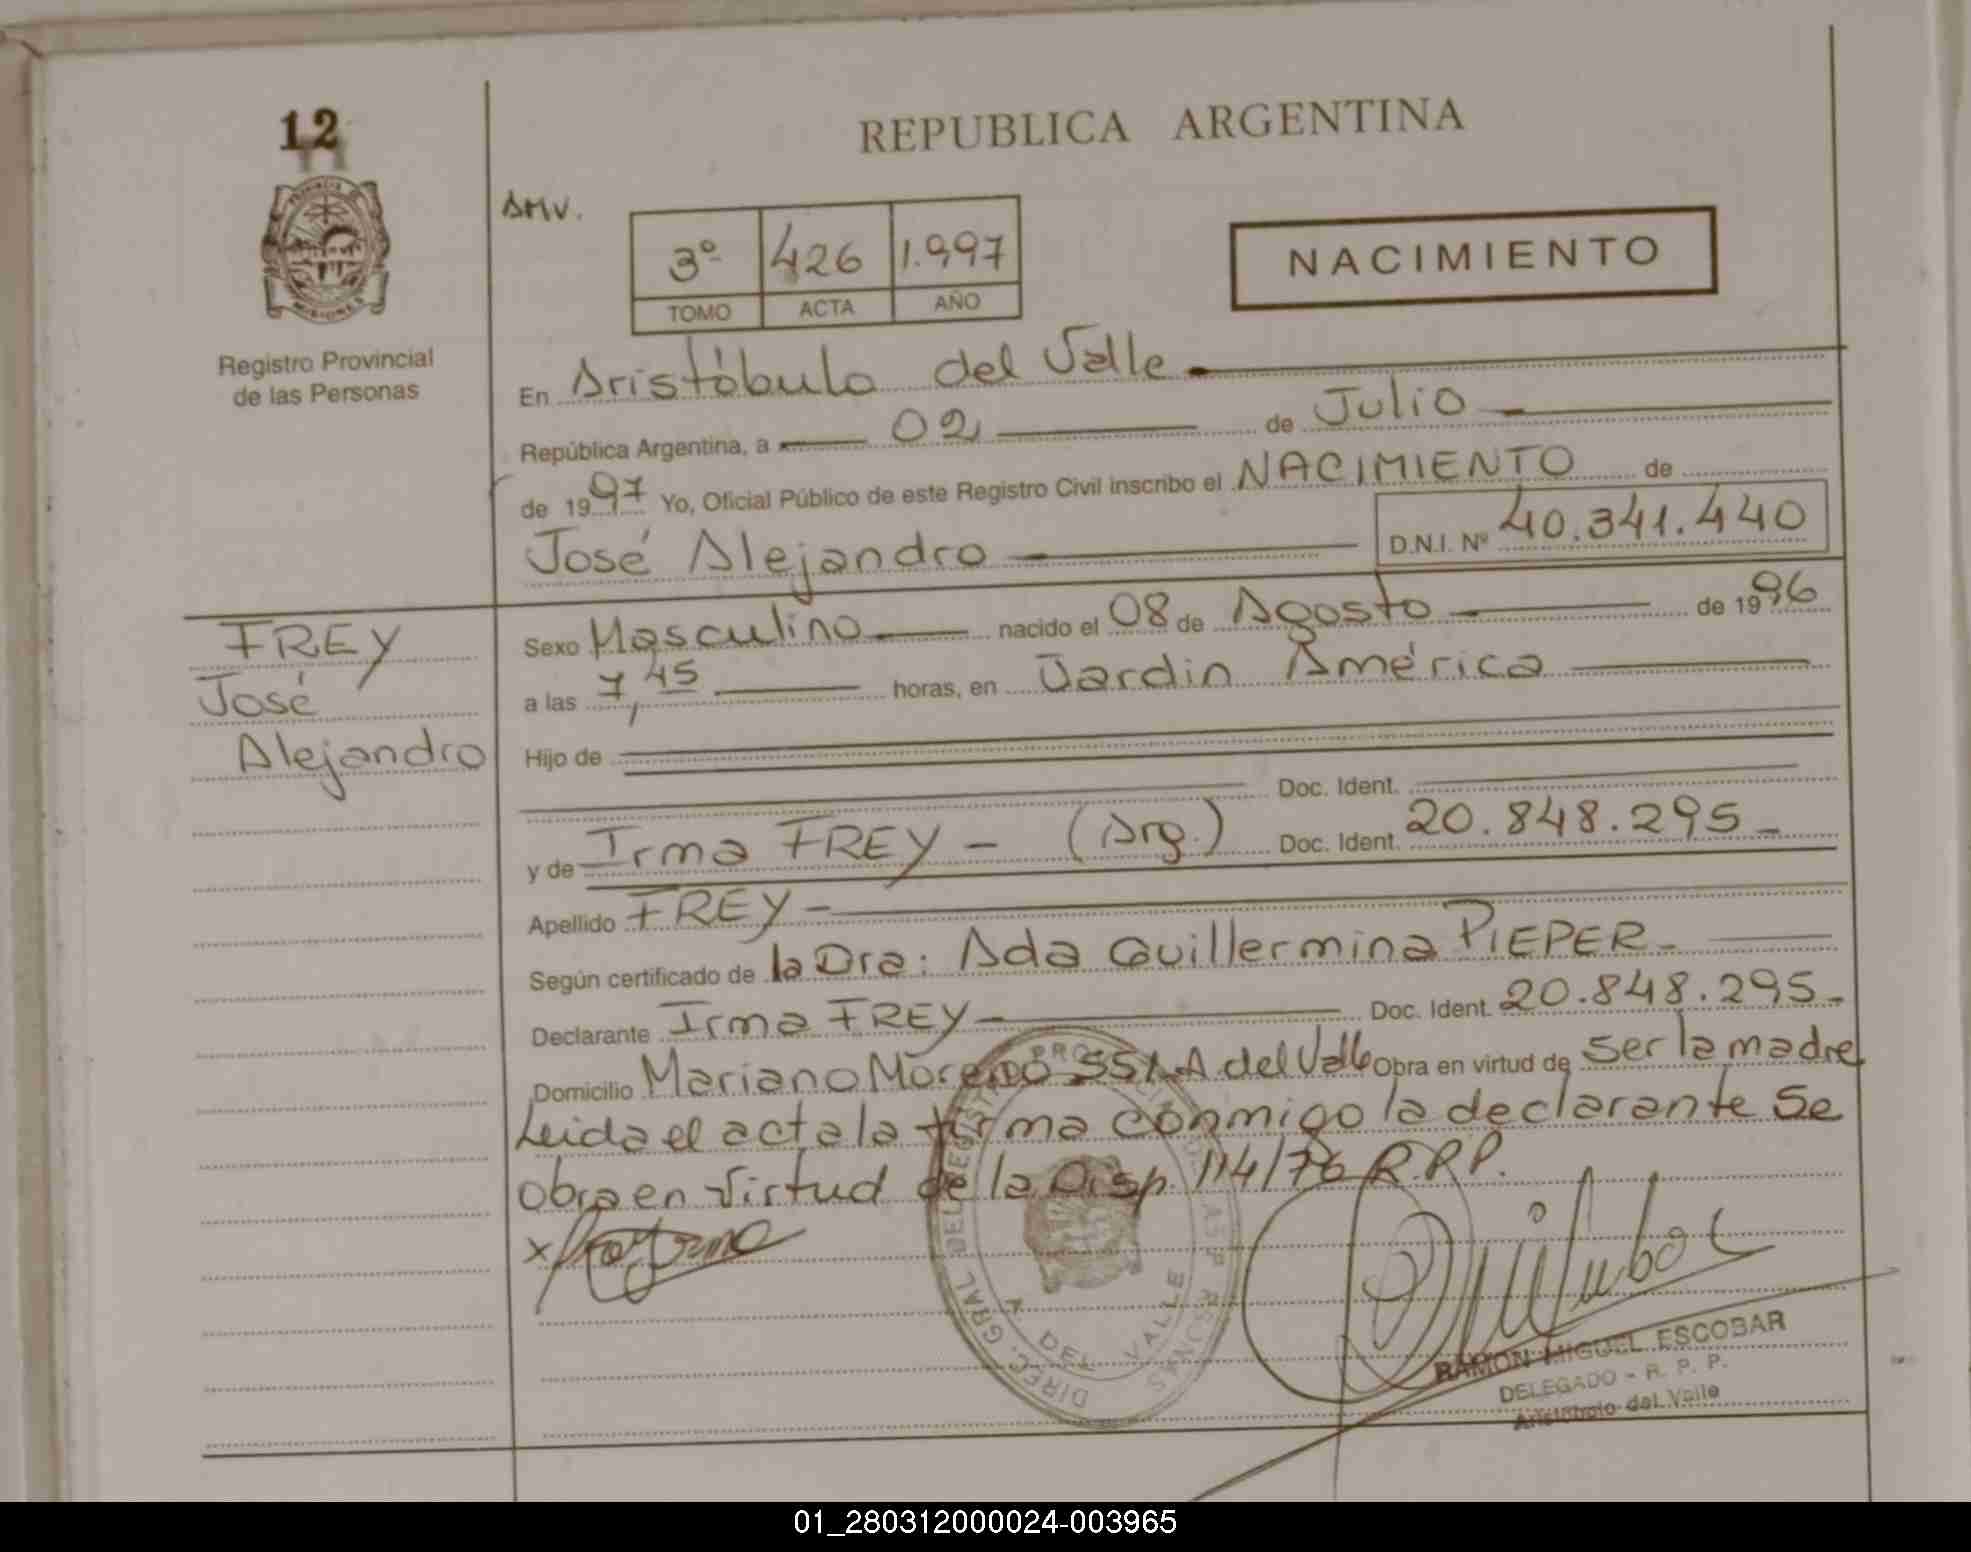 12
REPUBLICA ARGENTINA
AMV.
3º 426 1.997
TOMO ACTA AÑO
NACIMIENTO
MISIONES
Registro Provincial
de las Personas
En Aristóbulo del Valle
República Argentina, a 02 de Julio
de 1997 Yo, Oficial Público de este Registro Civil inscribo el NACIMIENTO de
José Alejandro D.N.I. Nº 40.341.440
FREY
José
Alejandro
Sexo Masculino nacido el 08 de Agosto de 1996
a las 7,45 horas, en Jardin América
Hijo de
Doc. Ident.
y de Irma FREY - (Arg.) Doc. Ident. 20.848.295-
Apellido FREY-
Según certificado de la Dra: Ada Guillermina PIEPER-
Declarante Irma FREY- Doc. Ident. 20.848.295-
Domicilio Mariano Moreno SS/N A. del Valle Obra en virtud de ser la madre
Leida el acta la firma conmigo la declarante Se
obra en virtud de la Disp. 114/76 R.P.P.
x
DIREC. GRAL DEL REGISTRO PROVINCIAL DE LAS PERSONAS
A. DEL VALLE
RAMON MIGUEL ESCOBAR
DELEGADO - R. P. P.
Aristóbulo del Valle
01_280312000024-003965